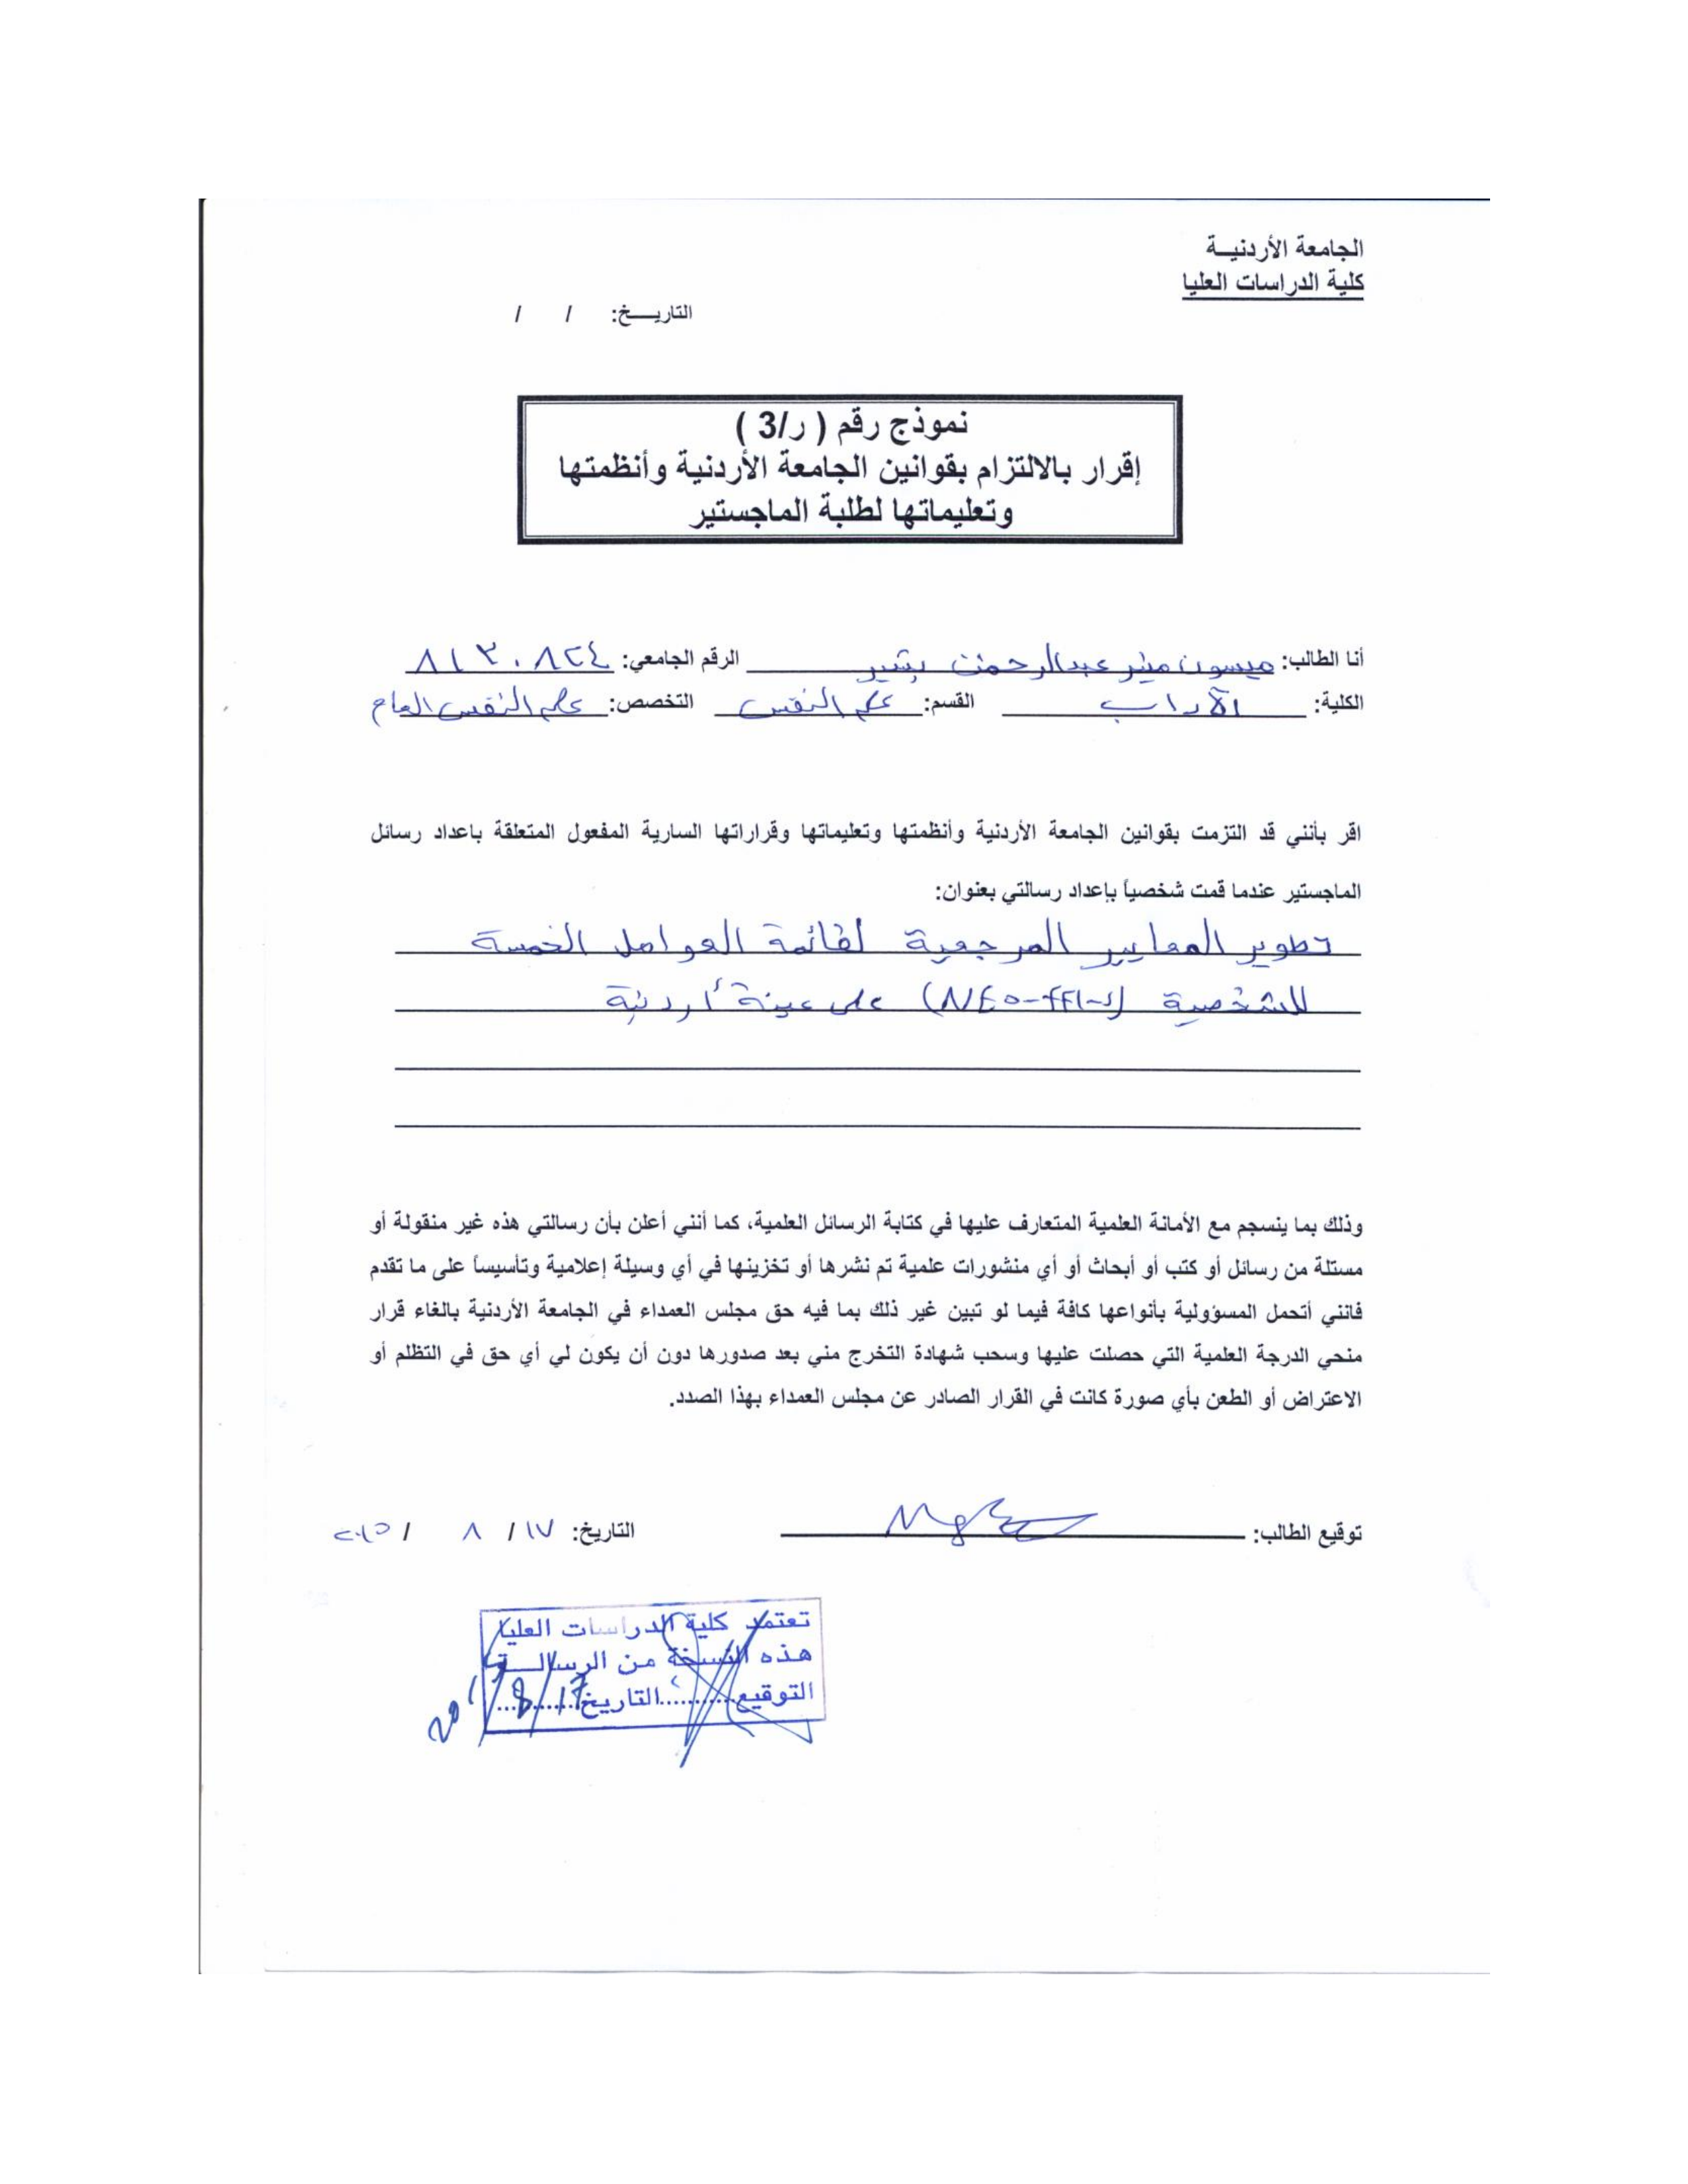 الجامعة الأردنيــة
كلية الدراسات العليا
التاريــخ: / /
نموذج رقم ( ر/3 )
إقرار بالالتزام بقوانين الجامعة الأردنية وأنظمتها
وتعليماتها لطلبة الماجستير
أنا الطالب: ميسون منير عبدالرحمن بشير الرقم الجامعي: ٨١٣٠٨٢٤
الكلية: الآداب القسم: علم النفس التخصص: علم النفس العام
اقر بأنني قد التزمت بقوانين الجامعة الأردنية وأنظمتها وتعليماتها وقراراتها السارية المفعول المتعلقة باعداد رسائل
الماجستير عندما قمت شخصياً بإعداد رسالتي بعنوان:
تطوير المعايير المرجعية لقائمة العوامل الخمسة
للشخصية (NEO-FFI-S) على عينة أردنية
وذلك بما ينسجم مع الأمانة العلمية المتعارف عليها في كتابة الرسائل العلمية، كما أنني أعلن بأن رسالتي هذه غير منقولة أو
مستلة من رسائل أو كتب أو أبحاث أو أي منشورات علمية تم نشرها أو تخزينها في أي وسيلة إعلامية وتأسيساً على ما تقدم
فانني أتحمل المسؤولية بأنواعها كافة فيما لو تبين غير ذلك بما فيه حق مجلس العمداء في الجامعة الأردنية بالغاء قرار
منحي الدرجة العلمية التي حصلت عليها وسحب شهادة التخرج مني بعد صدورها دون أن يكون لي أي حق في التظلم أو
الاعتراض أو الطعن بأي صورة كانت في القرار الصادر عن مجلس العمداء بهذا الصدد.
توقيع الطالب: التاريخ: ١٧ / ٨ / ٢٠١٥
تعتمد كلية الدراسات العليا
هذه النسخة من الرسالــة
التوقيع.........التاريخ 17/8/